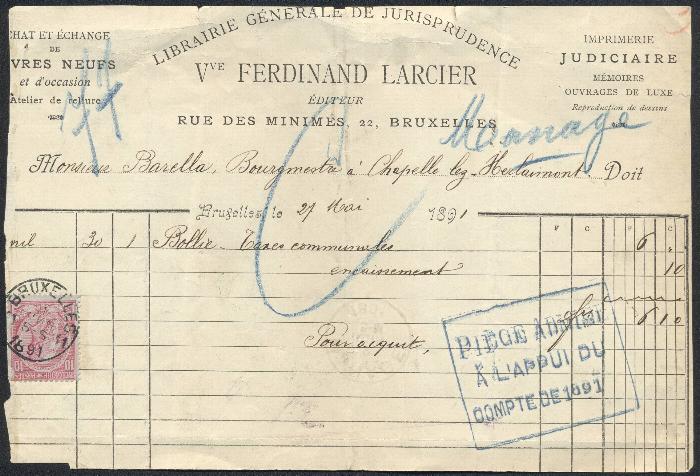 LIBRAIRIE GÉNÉRALE DE JURISPRUDENCE
Vve FERDINAND LARCIER
ÉDITEUR
RUE DES MINIMES, 22, BRUXELLES
CHAT ET ÉCHANGE
DE
VRES NEUFS
et d'occasion
Atelier de reliure
IMPRIMERIE
JUDICIAIRE
MÉMOIRES
OUVRAGES DE LUXE
Reproduction de dessins
Manage
Monsieur Barella, Bourgmestre à Chapelle lez-Herlaimont. Doit
Bruxelles, le 27 Mai 1891
F C F C
vril 30 1 Bollie - Taxes communales 6 "
encaissement 10
6 10
Pour acquit,
BRUXELLES
1891
PIÈCE ADMISE
À L'APPUI DU
COMPTE DE 1891